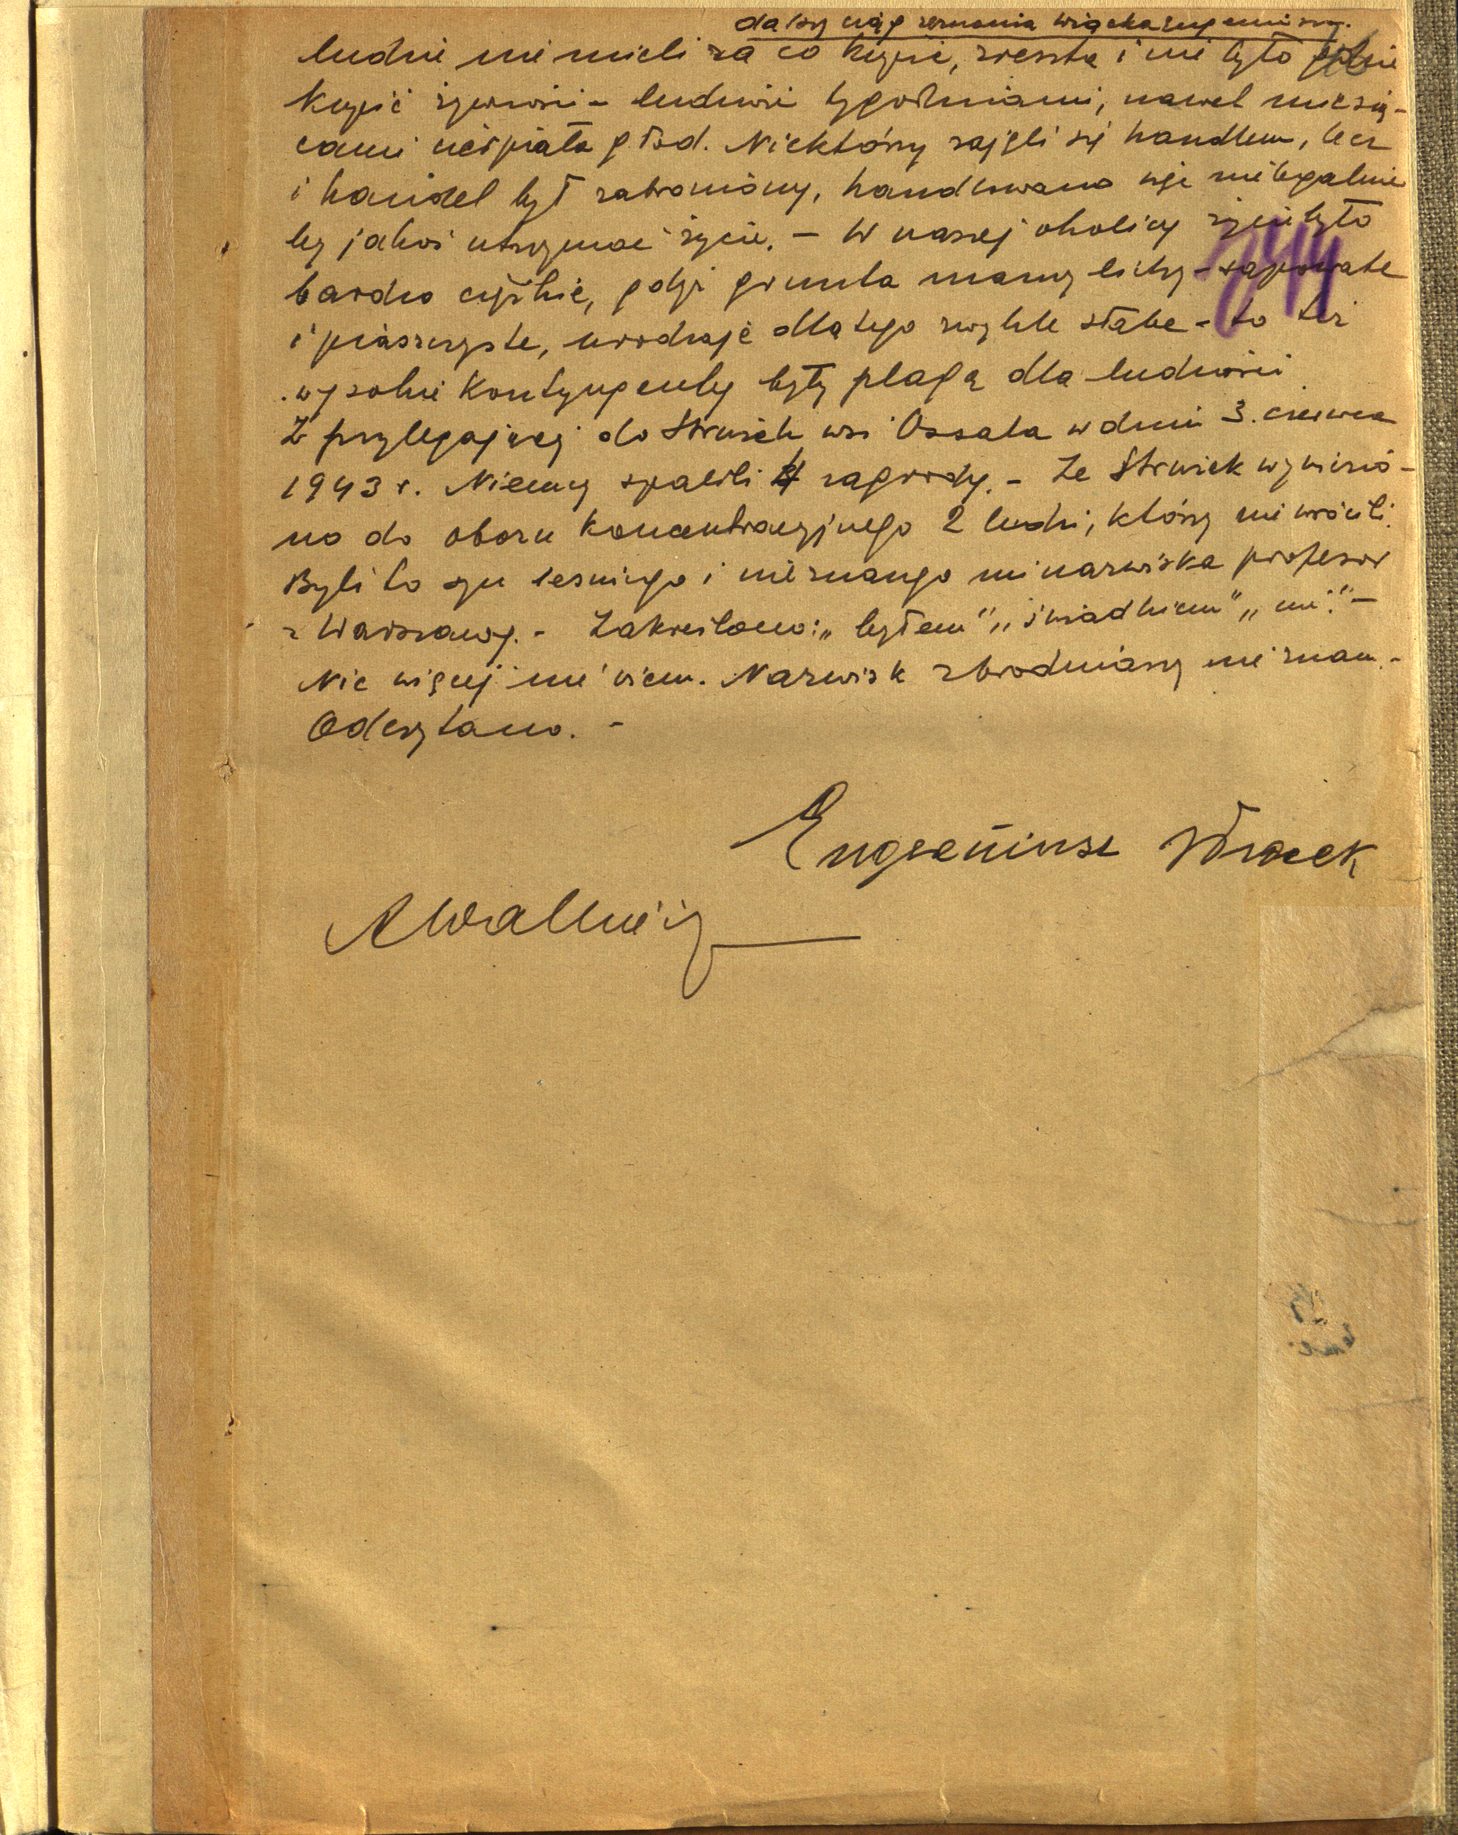 dalszy ciąg zeznania Wiącka Eugeniusza.
ludzie nie mieli za co kupić, zresztą i nie było gdzie
kupić żywności – ludność tygodniami, nawet miesią-
cami cierpiała głód. Niektórzy zajęli się handlem, lecz
i handel był zabroniony, handlowano więc nielegalnie
by jakoś utrzymać życie. – W naszej okolicy życie było
bardzo ciężkie, gdyż grunta mamy lichy – sapowate
i piaszczyste, urodzaje dlatego zwykle słabe – to też
wysokie kontyngenty były plagą dla ludności.
Z przylegającej do Strusek wsi Ossala w dniu 3. czerwca
1943 r. Niemcy spalili 4 zagrody. – Ze Strusek wywiezio-
no do obozu koncentracyjnego 2 ludzi, którzy nie wrócili.
Byli to syn leśniego i nieznanego mi nazwiska profesor
z Warszawy. – Zakreślono: „byłem" „świadkiem" „nie". –
Nic więcej nie wiem. Nazwisk zbrodniarzy nie znam. –
Odczytano. –
Eugeniusz Wiącek
344